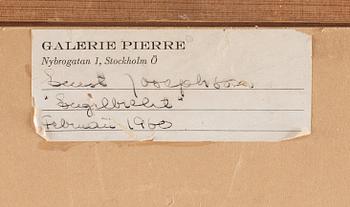 GALERIE PIERRE
Nybrogatan 1, Stockholm Ö
Ernst Josephson
"Engelbrekt"
Februari 1960